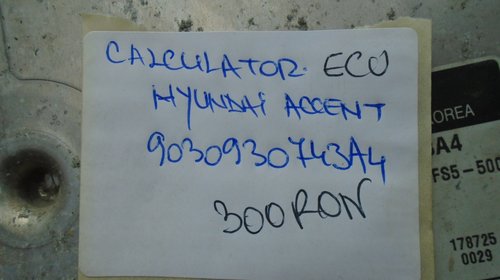 CALCULATOR. ECU
HYUNDAI ACCENT
9030930743A4
300RON
KOREA
A4
FS5-500
178725
0029